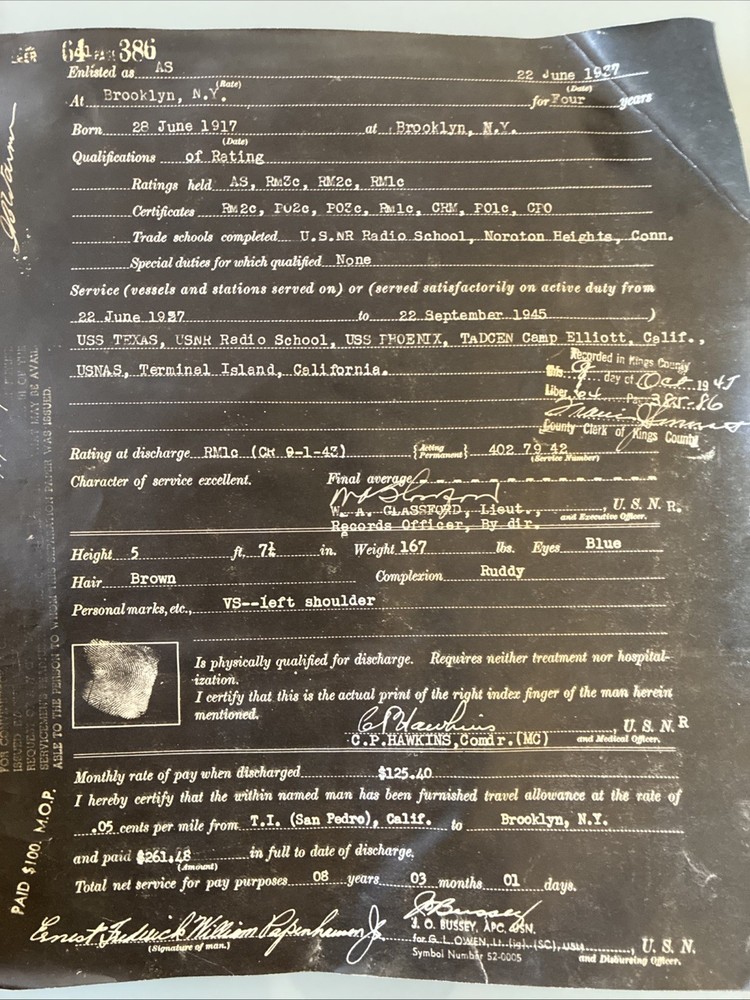 LIBER 641 PAGE 386
Enlisted as AS 22 June 1937
(Rate) (Date)
At Brooklyn, N.Y. for Four years
Born 28 June 1917 at Brooklyn, N.Y.
(Date)
Qualifications of Rating
Ratings held AS, RM3c, RM2c, RM1c
Certificates RM2c, PO2c, PO3c, RM1c, CRM, PO1c, CPO
Trade schools completed U.S.NR Radio School, Noroton Heights, Conn.
Special duties for which qualified None
Service (vessels and stations served on) or (served satisfactorily on active duty from
22 June 1937 to 22 September 1945 )
USS TEXAS, USNR Radio School, USS PHOENIX, TADCEN Camp Elliott, Calif.,
USNAS, Terminal Island, California.
Recorded in Kings County
this 9 day of Oct 1945
Liber 64 Page 385-86
County Clerk of Kings County
Rating at discharge RM1c (CR 9-1-43) {Acting Permanent} 402 79 42
(Service Number)
Character of service excellent. Final average
W. A. GLASSFORD, Lieut., U. S. N R.
Records Officer, By dir. and Executive Officer.
Height 5 ft. 7½ in. Weight 167 lbs. Eyes Blue
Hair Brown Complexion Ruddy
Personal marks, etc., VS--left shoulder
Is physically qualified for discharge. Requires neither treatment nor hospital-
ization.
I certify that this is the actual print of the right index finger of the man herein
mentioned.
C P Hawkins
C.P.HAWKINS,Comdr.(MC) , U. S. N R
and Medical Officer.
Monthly rate of pay when discharged $125.40
I hereby certify that the within named man has been furnished travel allowance at the rate of
.05 cents per mile from T.I. (San Pedro), Calif. to Brooklyn, N.Y.
and paid $261.48 in full to date of discharge.
(Amount)
Total net service for pay purposes 08 years 03 months 01 days.
Ernest Fredrick William Papenhausen Jr
(Signature of man.)
J O Bussey
J. O. BUSSEY, APC, USN.
for G. L. OWEN, Lt. (jg), (SC), USN , U. S. N.
Symbol Number 52-0005 and Disbursing Officer.
PAID $100. M.O.P.
ABLE TO THE PERSON TO WHOM THE SEPARATION PAPER WAS ISSUED.